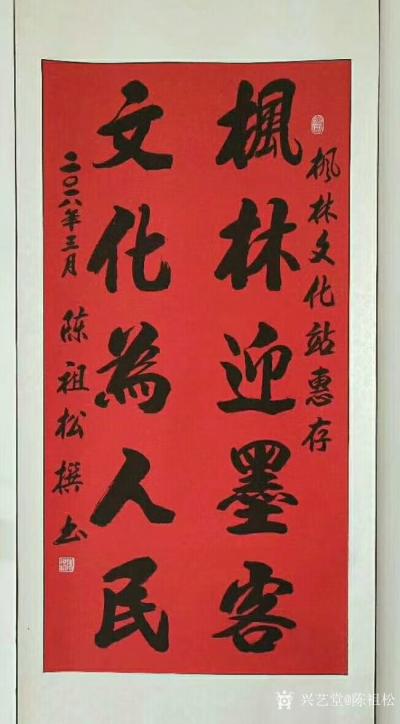 枫林文化站惠存
楓林迎墨客
文化為人民
二〇一八年三月 陈祖松撰书
兴艺堂@陈祖松